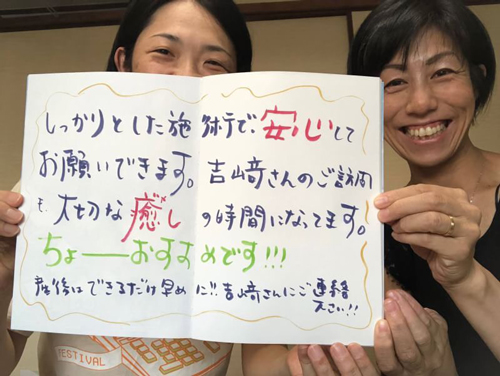 しっかりとした施術で、安心して
お願いできます。吉﨑さんのご訪問
も、大切な癒しの時間になってます。
ちょーーおすすめです!!!
産後はできるだけ早めに!!吉﨑さんにご連絡
下さい!!
FESTIVAL